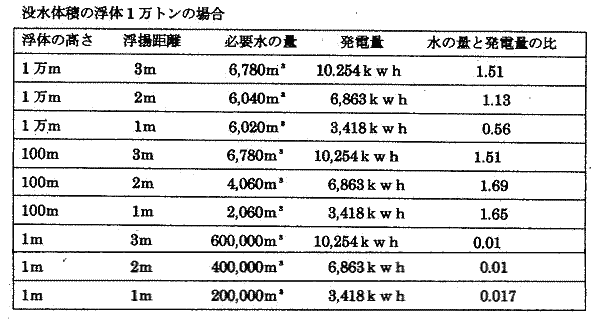 没水体積の浮体1万トンの場合
浮体の高さ 浮揚距離 必要水の量 発電量 水の量と発電量の比
1万m 3m 6,780m³ 10.254kwh 1.51
1万m 2m 6,040m³ 6,863kwh 1.13
1万m 1m 6,020m³ 3,418kwh 0.56
100m 3m 6,780m³ 10,254kwh 1.51
100m 2m 4,060m³ 6,863kwh 1.69
100m 1m 2,060m³ 3,418kwh 1.65
1m 3m 600,000m³ 10,254kwh 0.01
1m 2m 400,000m³ 6,863kwh 0.01
1m 1m 200,000m³ 3,418kwh 0.017